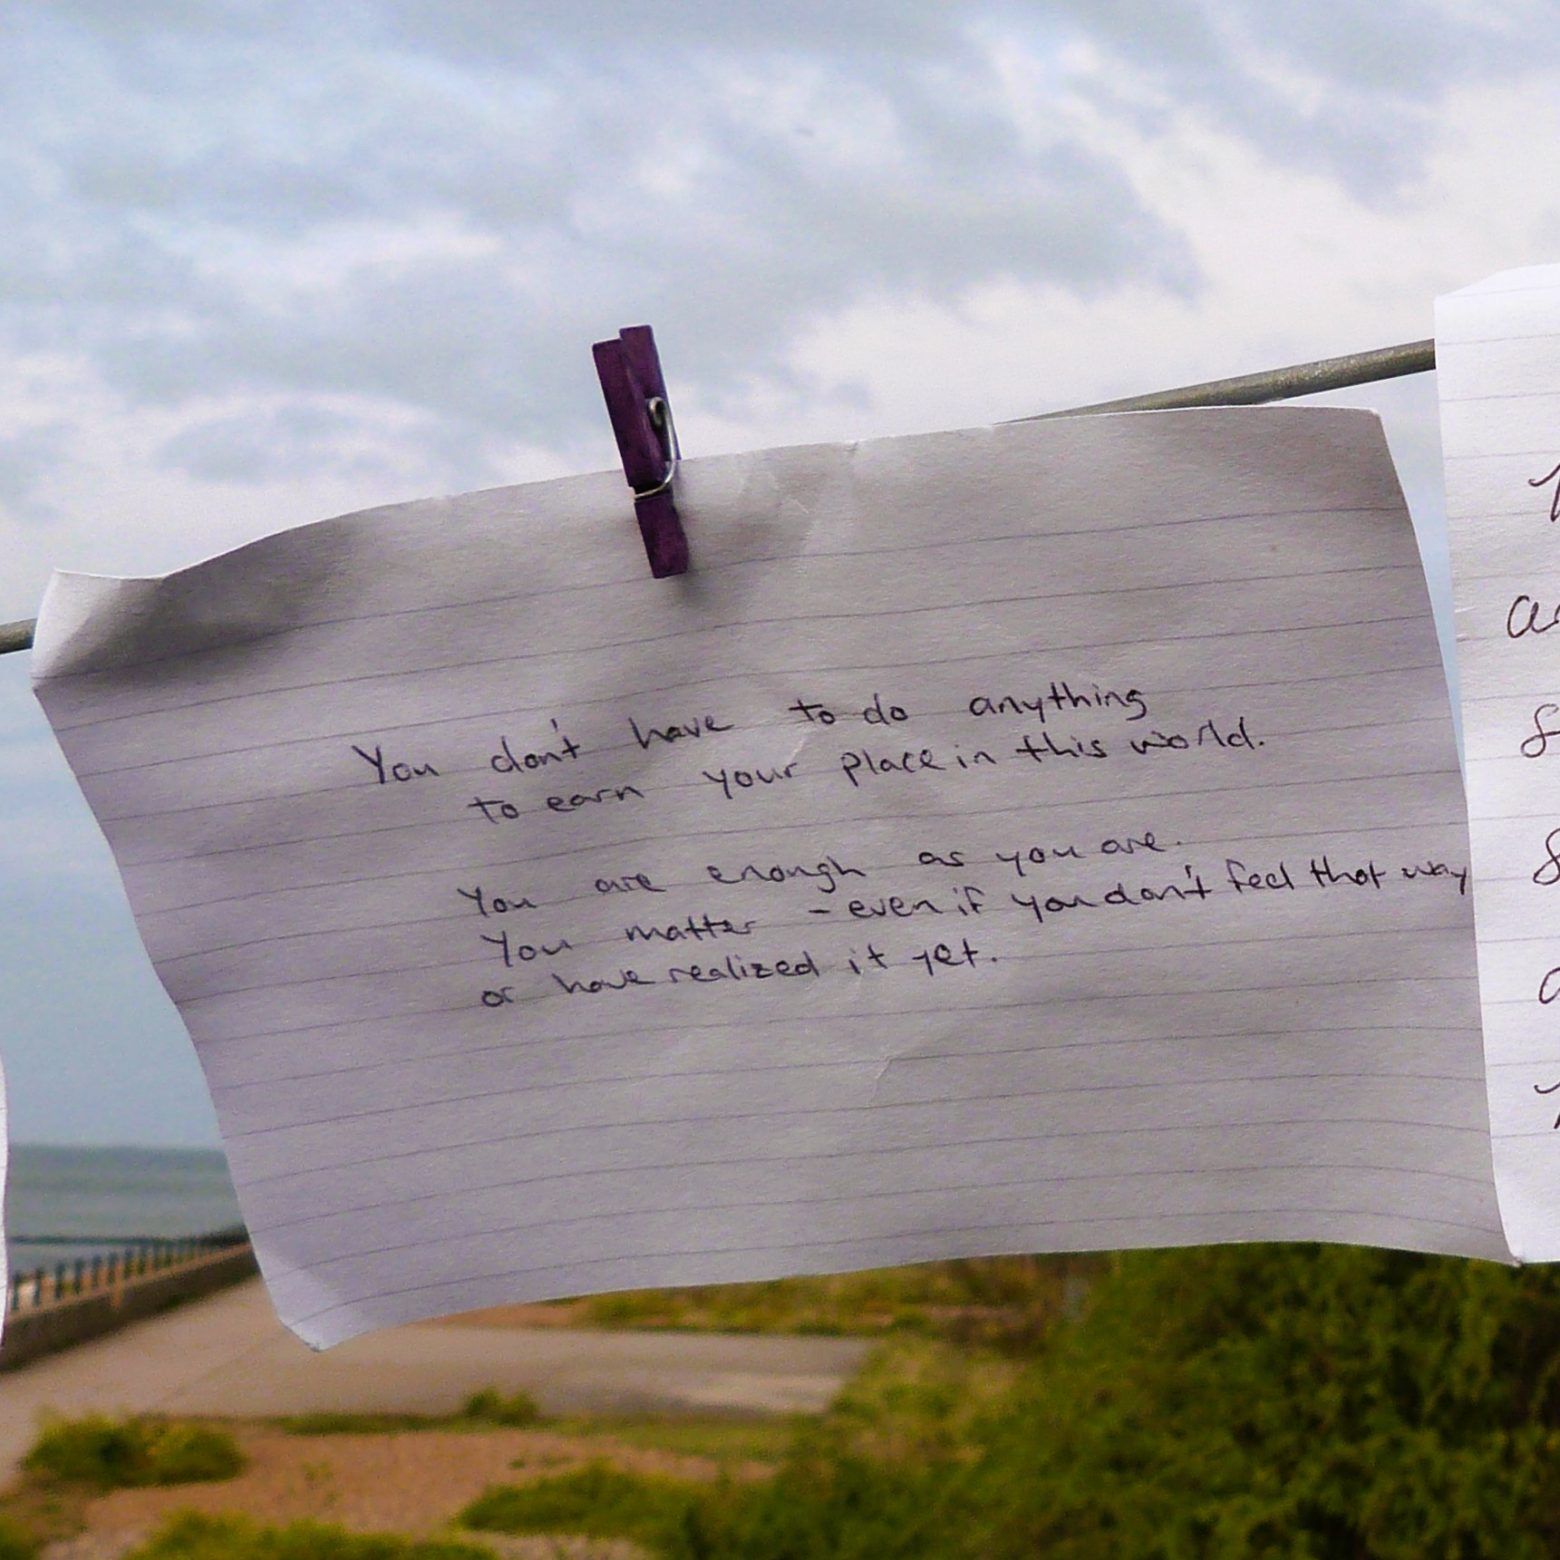 You don't have to do anything
to earn your place in this world.
You are enough as you are.
You matter - even if you don't feel that way
or have realized it yet.